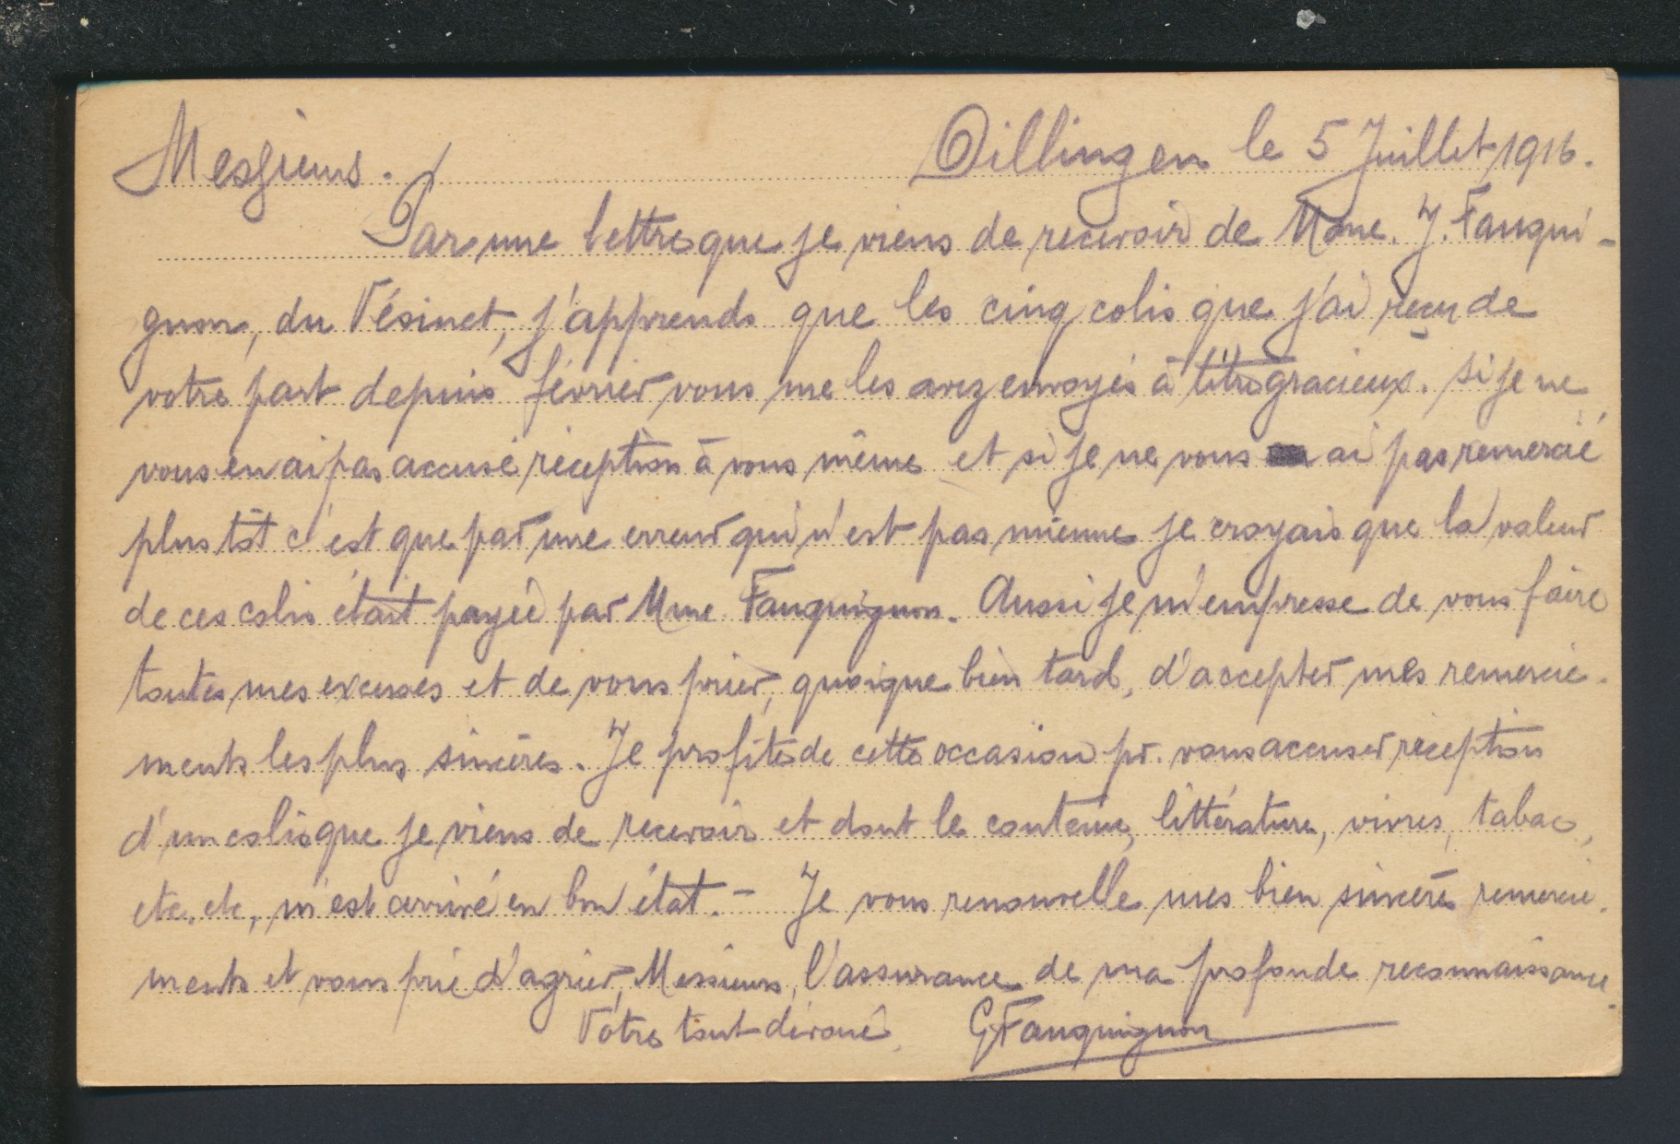 Messieurs. Dillingen le 5 Juillet 1916.
Par une lettre que je viens de recevoir de Mme. J. Fauqui-
gnon, du Vésinet, j'apprends que les cinq colis que j'ai reçu de
votre part depuis février vous me les avez envoyés à titre gracieux. Si je ne
vous en ai pas accusé réception à vous même et si je ne vous ai pas remercié
plus tôt c'est que par une erreur qui n'est pas mienne je croyais que la valeur
de ces colis était payée par Mme Fauquignon. Aussi je m'empresse de vous faire
toutes mes excuses et de vous prier, quoique bien tard, d'accepter mes remercie-
ments les plus sincères. Je profite de cette occasion pr. vous accuser réception
d'un colis que je viens de recevoir et dont le contenu, littérature, vivres, tabac,
etc. etc, m'est arrivé en bon état. - Je vous renouvelle mes bien sincères remercie-
ments et vous prie d'agréer, Messieurs, l'assurance de ma profonde reconnaissance.
Votre tout dévoué. G Fauquignon